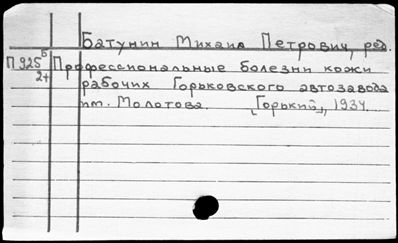 Батунин Михаил Петрович, ред.
П925 Б 2+ Профессиональные болезни кожи
рабочих Горьковского автозавода
им. Молотова. [Горький], 1934